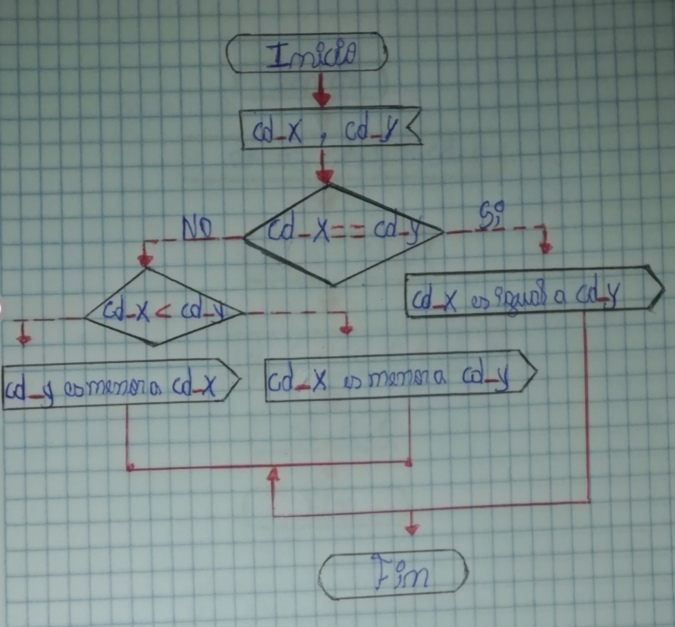 Inicio
cd_x , cd_y
cd_x == cd_y
NO
Si
cd_x < cd_y
cd_x es igual a cd_y
cd_y es menor a cd_x
cd_x es menor a cd_y
Fin